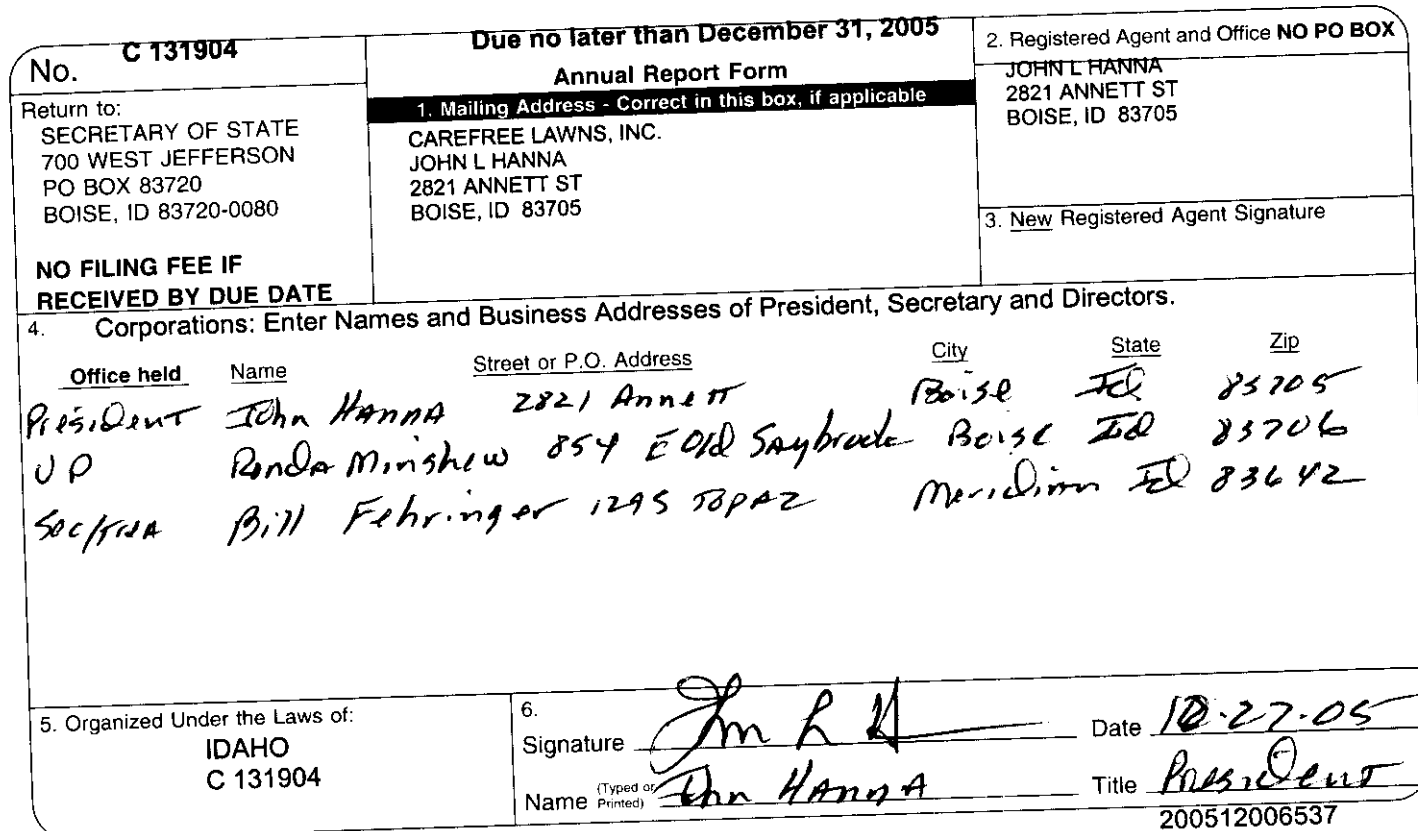 No. C 131904
Return to:
SECRETARY OF STATE
700 WEST JEFFERSON
PO BOX 83720
BOISE, ID 83720-0080
NO FILING FEE IF
RECEIVED BY DUE DATE
Due no later than December 31, 2005
Annual Report Form
1. Mailing Address - Correct in this box, if applicable
CAREFREE LAWNS, INC.
JOHN L HANNA
2821 ANNETT ST
BOISE, ID 83705
2. Registered Agent and Office NO PO BOX
JOHN L HANNA
2821 ANNETT ST
BOISE, ID 83705
3. New Registered Agent Signature
4. Corporations: Enter Names and Business Addresses of President, Secretary and Directors.
Office held Name Street or P.O. Address City State Zip
President John HANNA 2821 Annett Boise Id 83705
VP Ronda Minshew 854 E Old Saybrook Boise Id 83706
Sec/ Bill Fehringer 1295 TOPAZ Meridian Id 83642
5. Organized Under the Laws of:
IDAHO
C 131904
6.
Signature Date 12-27-05
Name (Typed or Printed) John HANNA Title President
200512006537